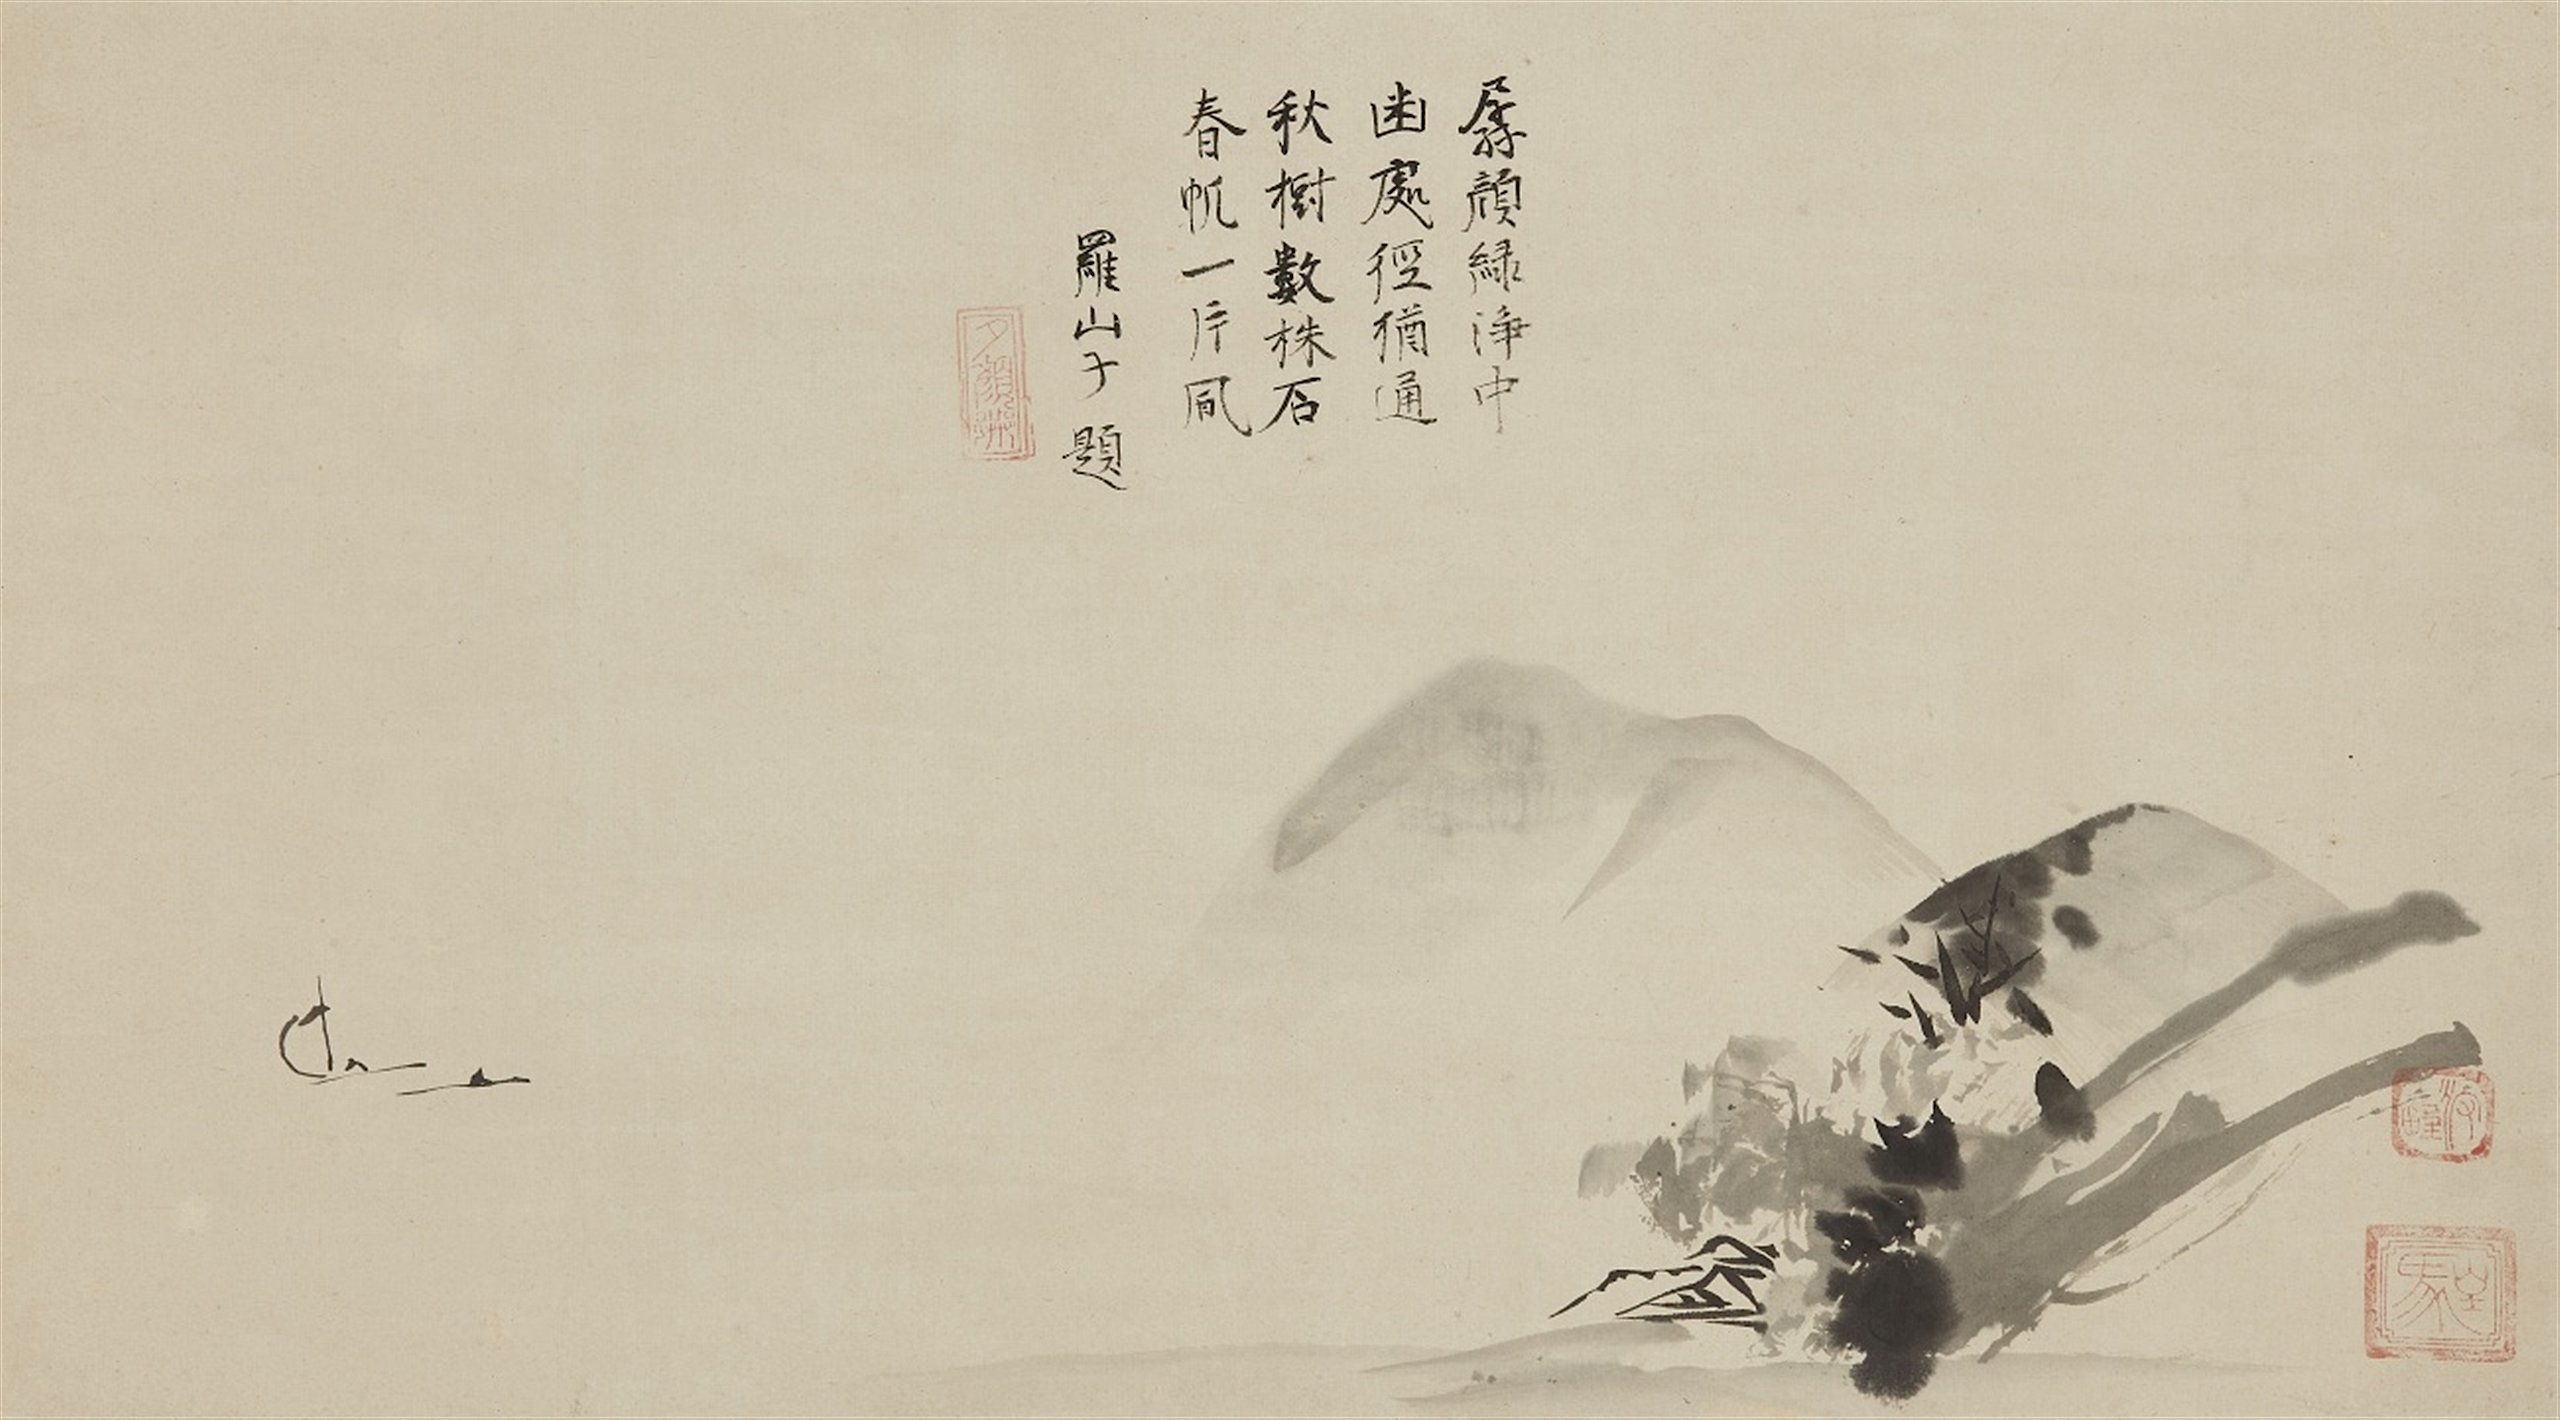 孱顔緑淨中
幽處徑猶通
秋樹數株石
春帆一片風
羅山子題
夕顔巷